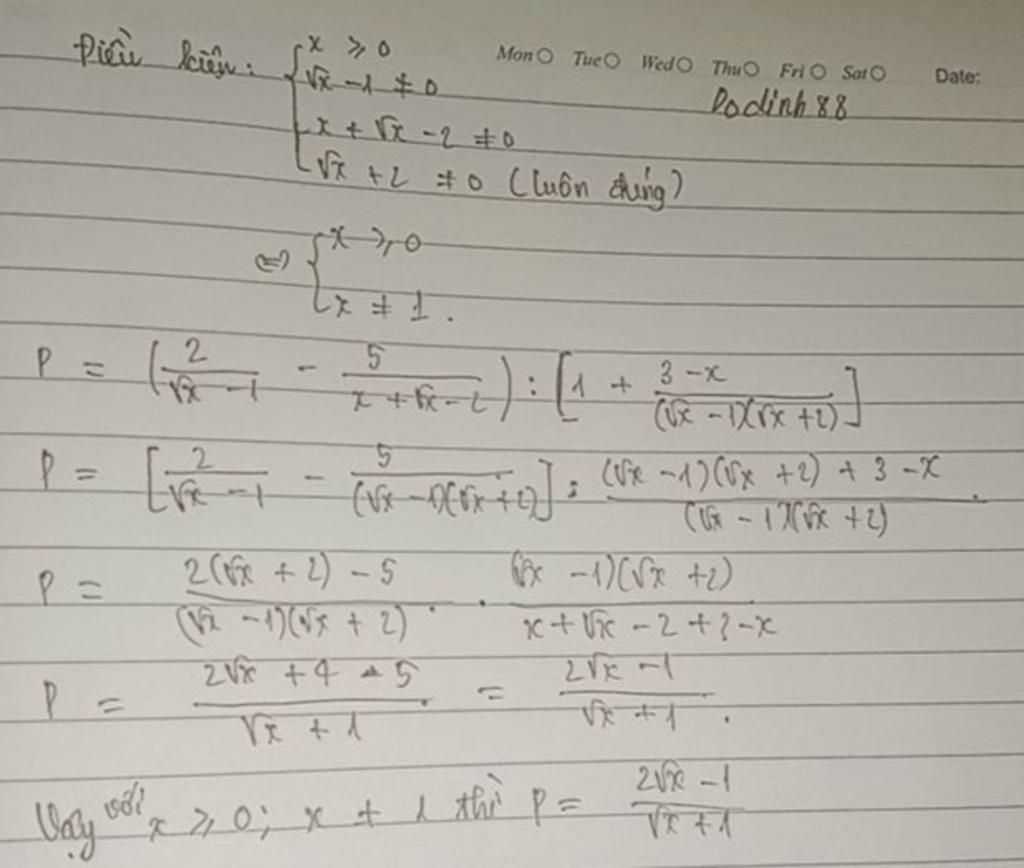 Điều kiện: { x ≥ 0 Mon Tue Wed Thu Fri Sat Date:
√x - 1 ≠ 0 Dodinh 88
x + √x - 2 ≠ 0
√x + 2 ≠ 0 (luôn đúng)
⇔ { x ≥ 0
x ≠ 1.
P = (2/(√x - 1) - 5/(x + √x - 2)) : [1 + (3 - x)/((√x - 1)(√x + 2))]
P = [2/(√x - 1) - 5/((√x - 1)(√x + 2))] : ((√x - 1)(√x + 2) + 3 - x)/((√x - 1)(√x + 2)).
P = (2(√x + 2) - 5)/((√x - 1)(√x + 2)) . ((√x - 1)(√x + 2))/(x + √x - 2 + 3 - x)
P = (2√x + 4 - 5)/(√x + 1) = (2√x - 1)/(√x + 1).
Vậy với x ≥ 0; x ≠ 1 thì P = (2√x - 1)/(√x + 1)